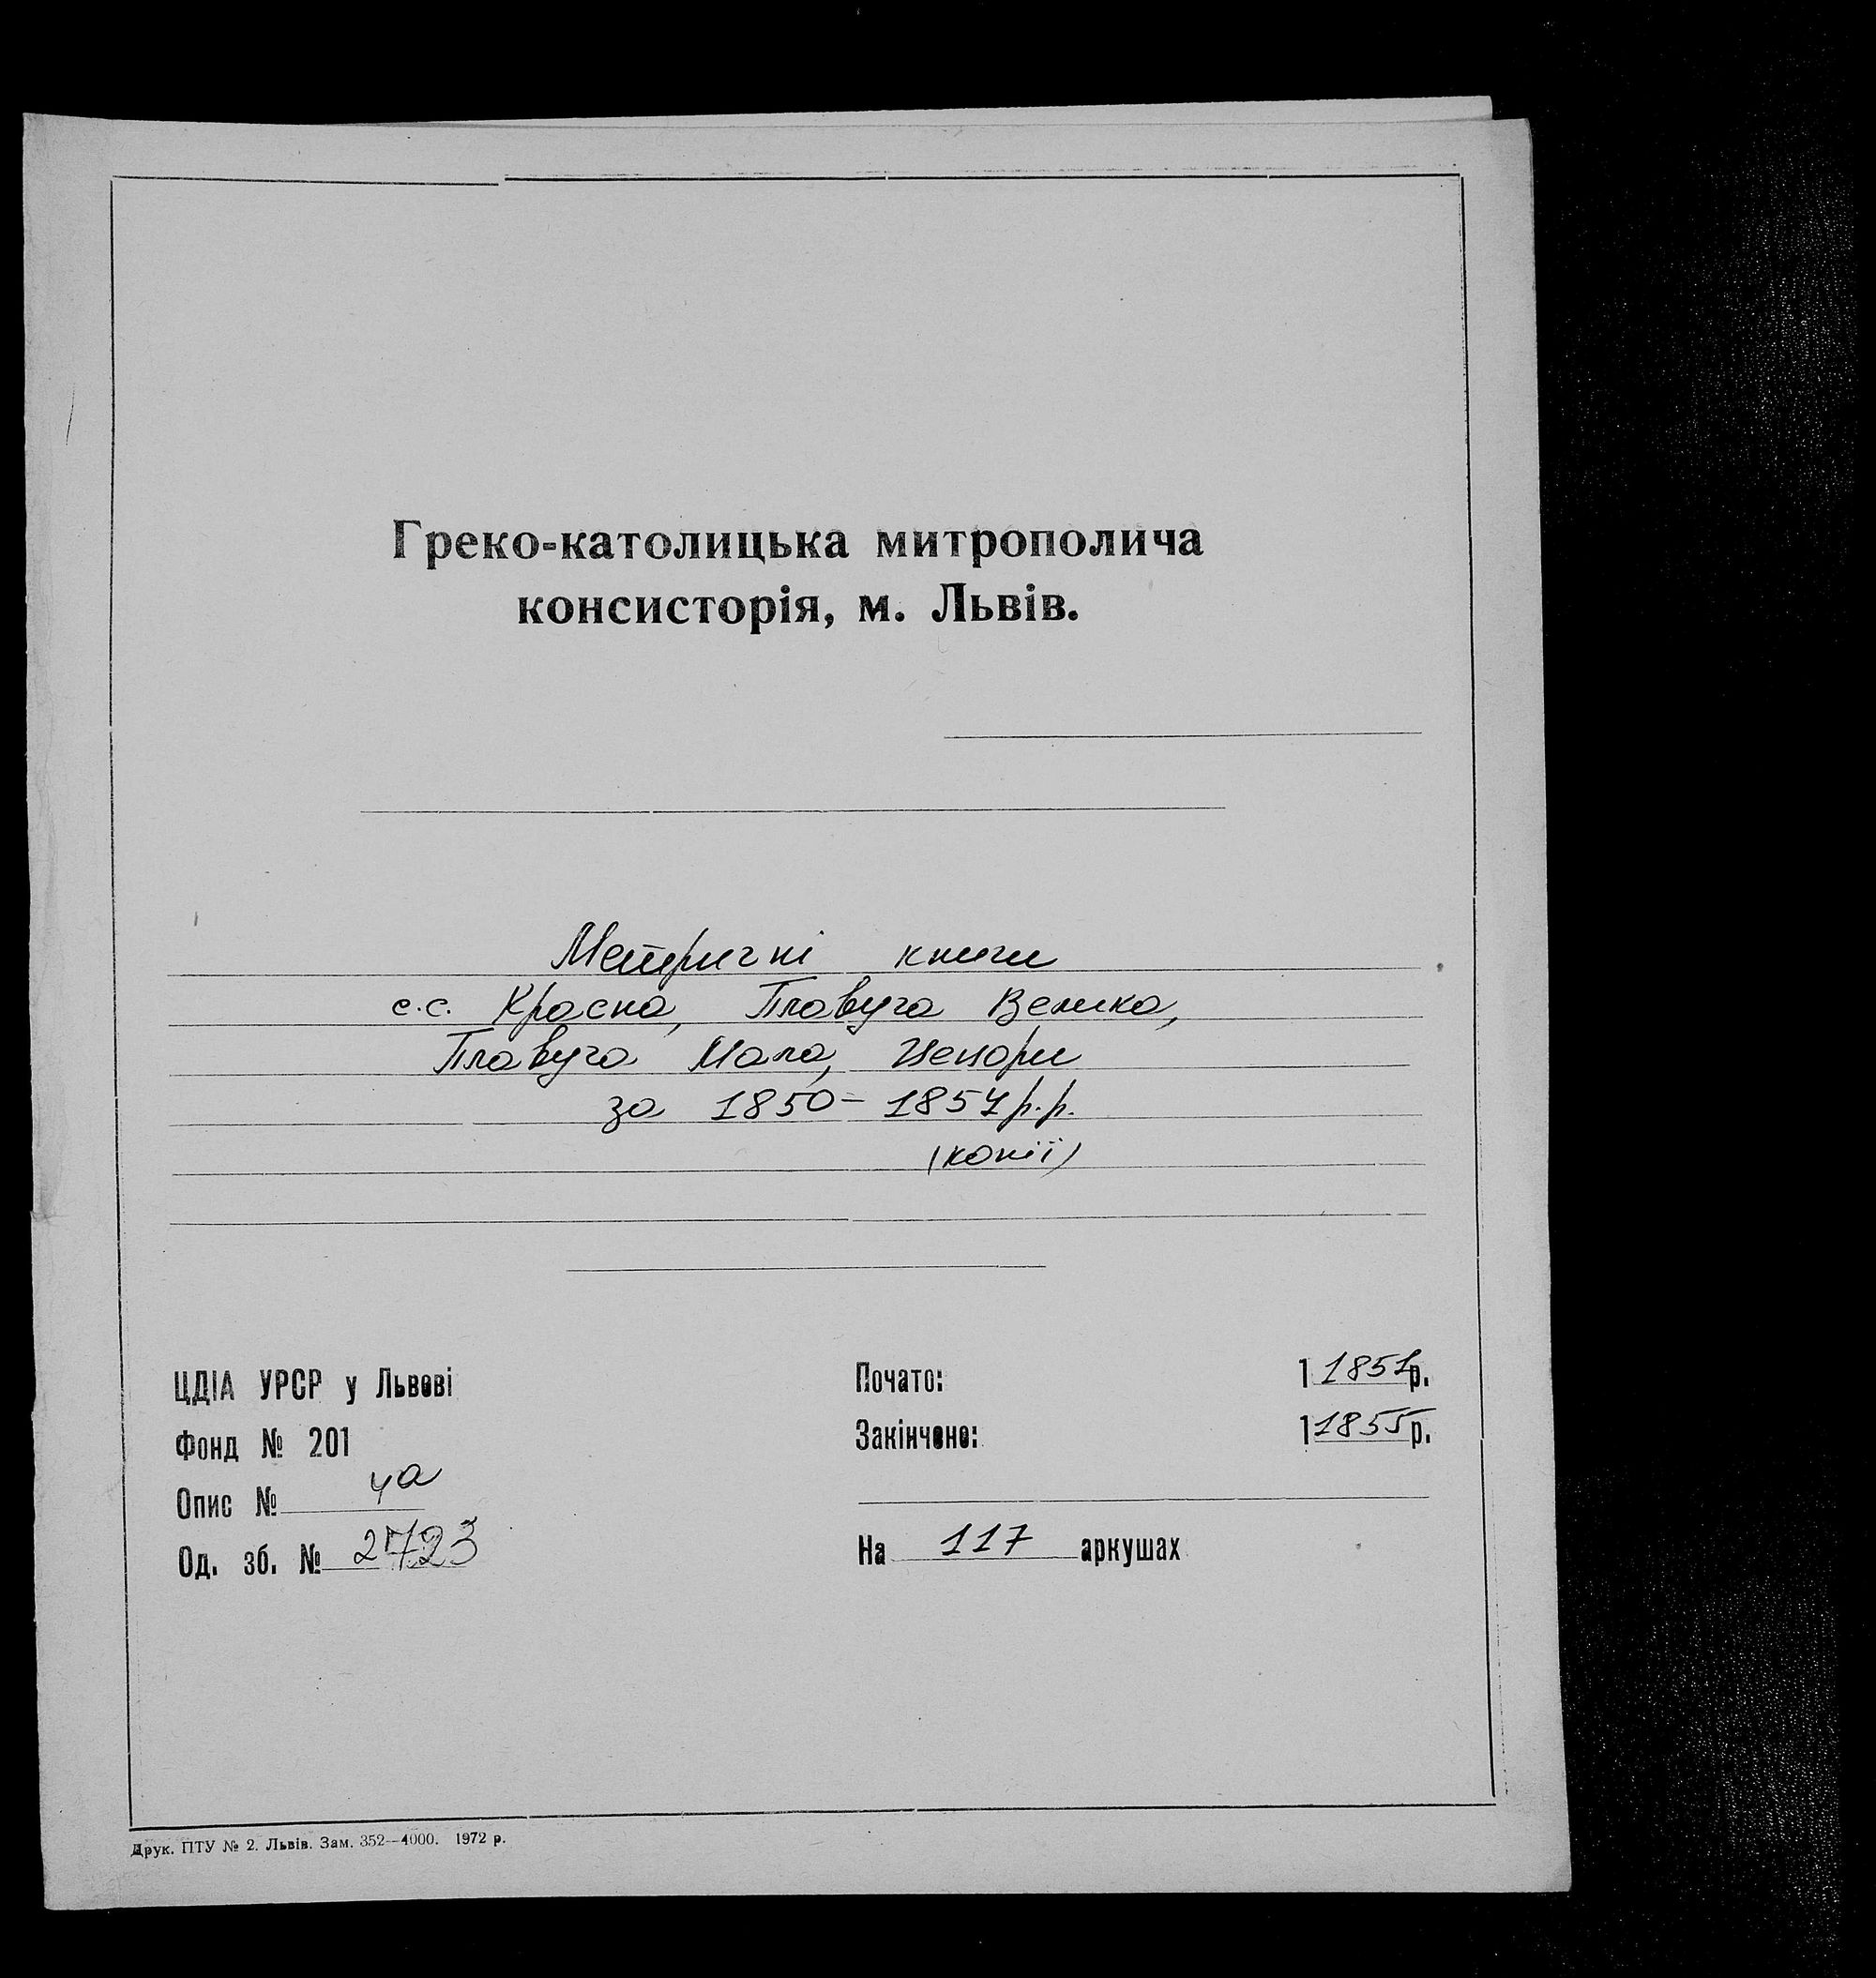 Греко-католицька митрополича
консисторія, м. Львів.
Метричні книги
с.с. Красна, Плавуча Велика,
Плавуча Мала, Цецори
за 1850-1854 р.р.
(копії)
ЦДІА УРСР у Львові
Фонд № 201
Опис № 4а
Од. зб. № 2723
Почато: 1 1851р.
Закінчено: 1 1855р.
На 117 аркушах
Друк. ПТУ № 2. Львів. Зам. 352—4000. 1972 р.